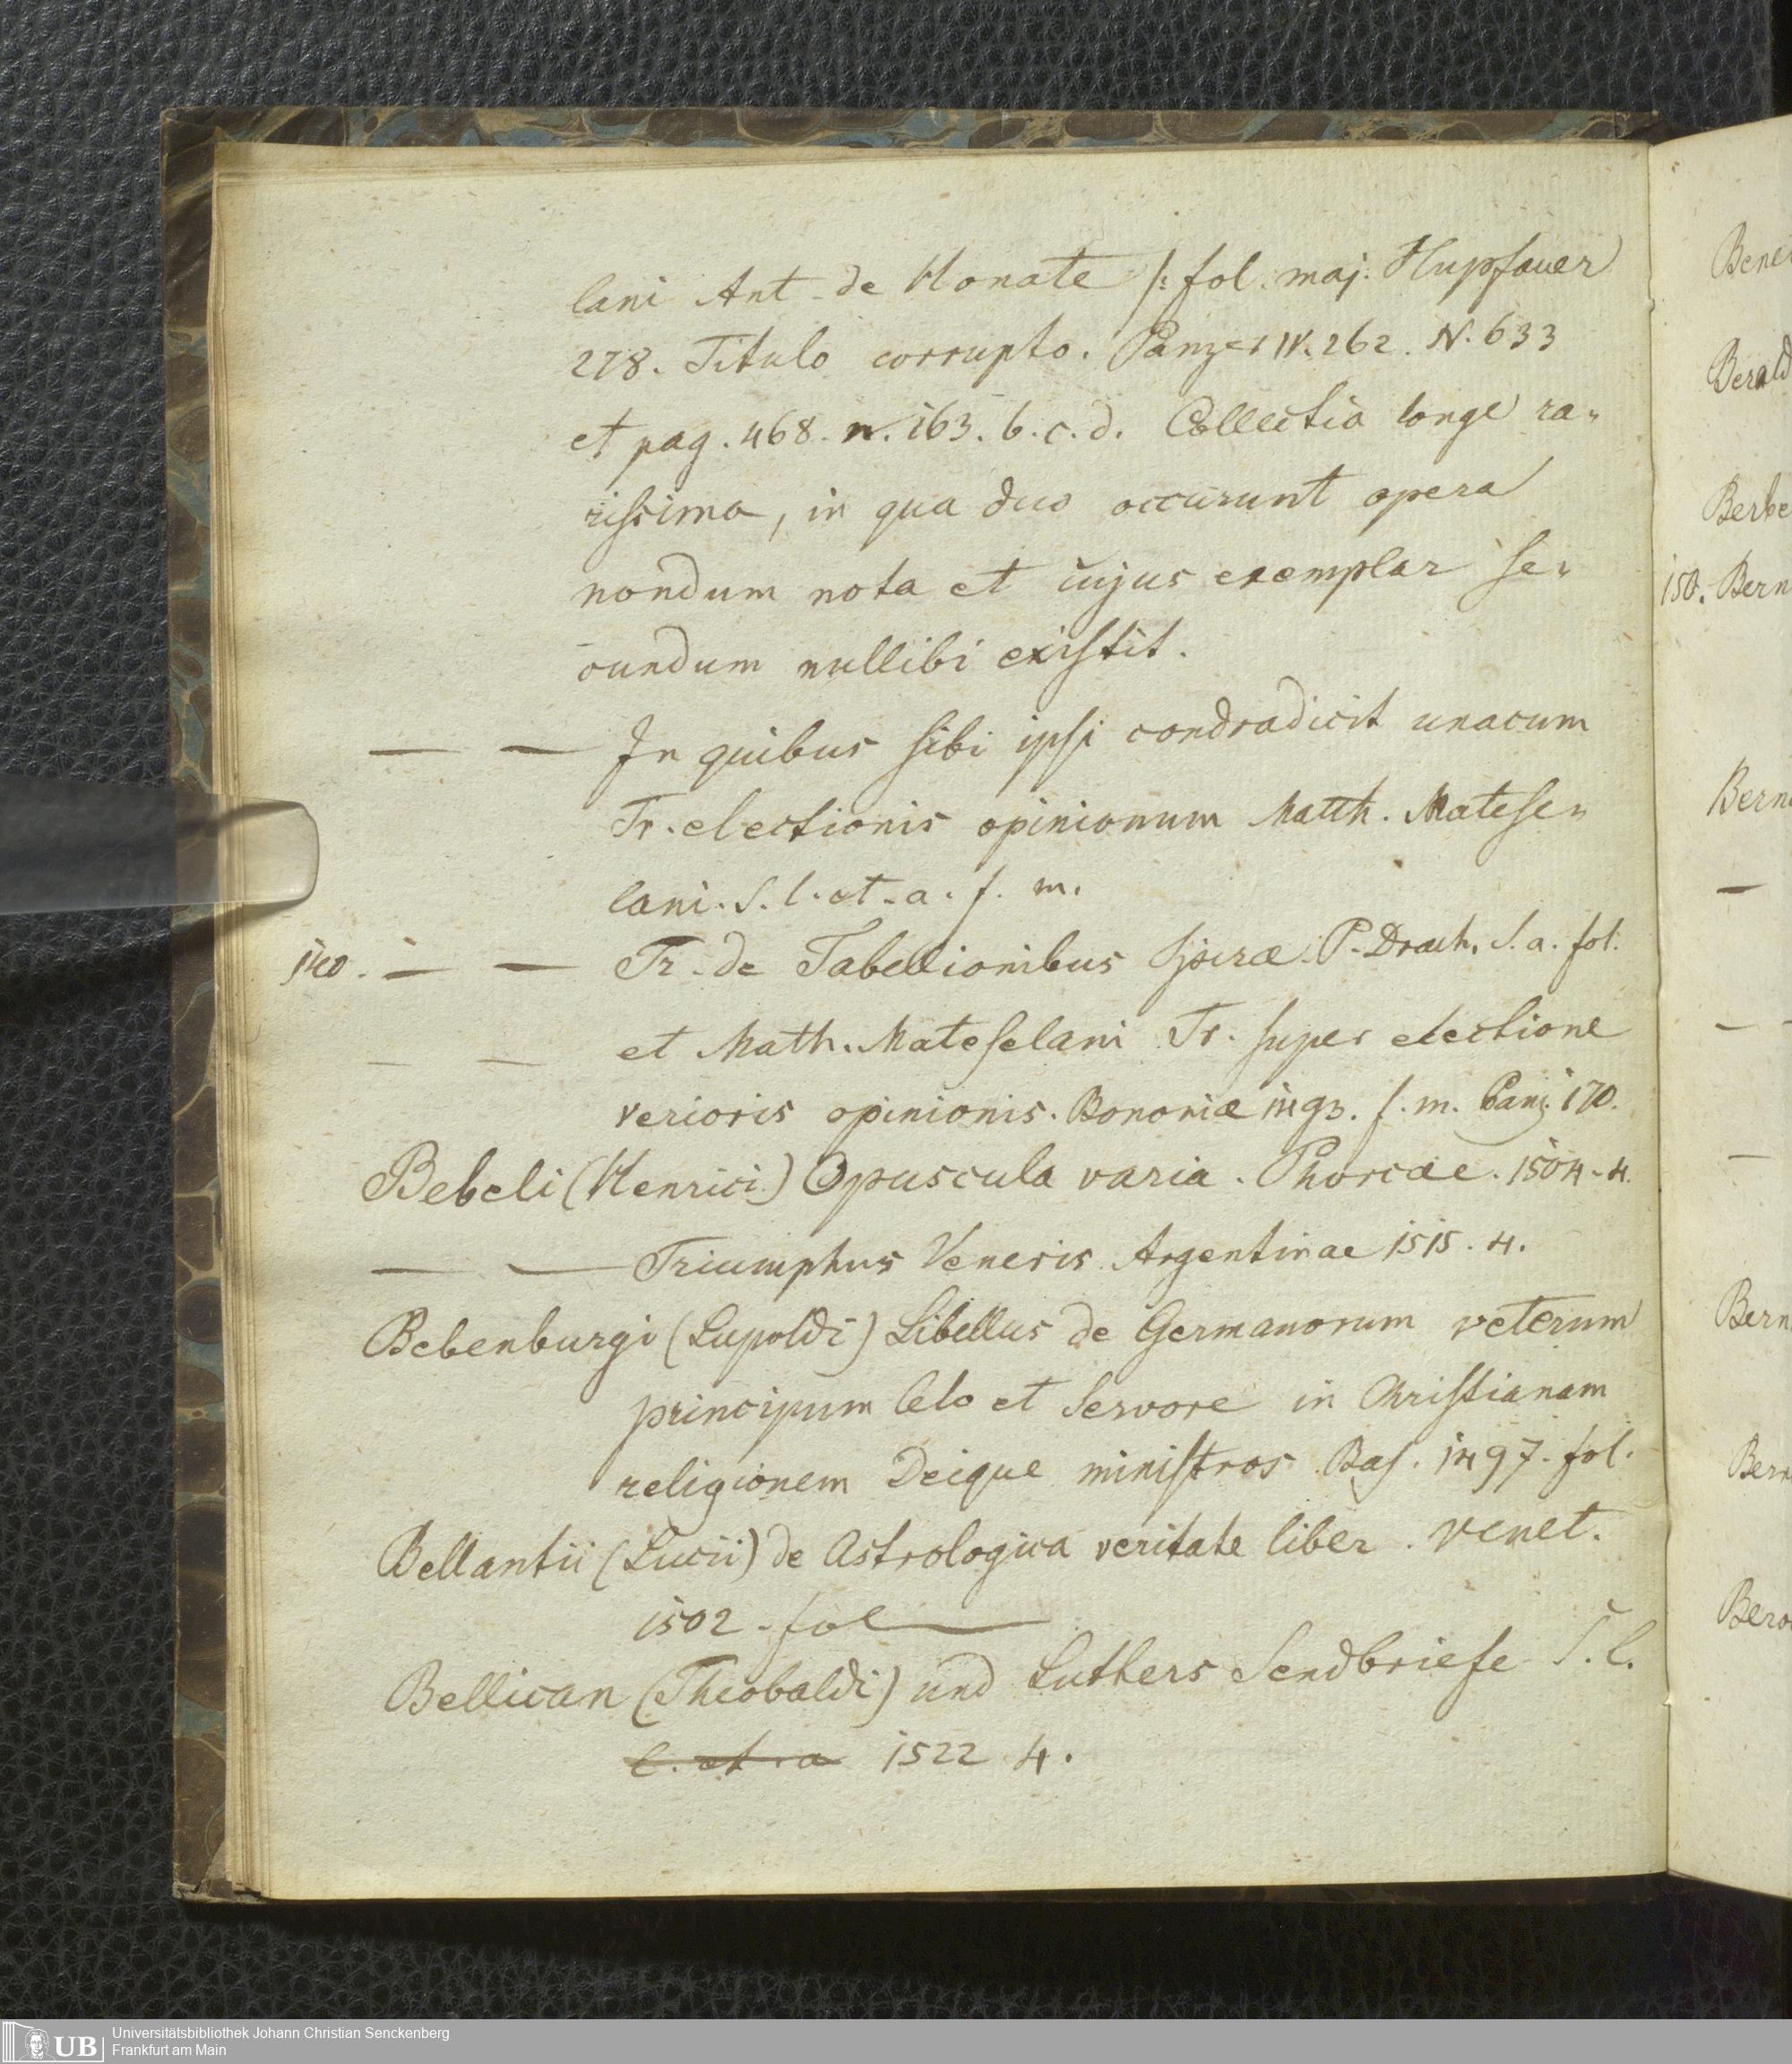 lani Ant. de Honate /: fol. maj. Hupfauer
278. Titulo corrupto. Panzer IV. 262. N. 633
et pag. 468. n. 163. b. c. d. Collectio longe ra„
rissima, in qua duo occurunt opera
nondum nota et cujus exemplar se„
cundum nullibi existit.
— — In quibus sibi ipsi condradicit unacum
Tr. electionis opinionum Matth. Matese„
lani. S. l. et. a. f. m.
140. — — Tr. de Tabellionibus Spiræ. P. Drach. S. a. fol.
— — et Math. Mateselani Tr. super electione
verioris opinionis. Bononiæ 1493. f. m. Panz. 170.
Bebeli (Henrici) Opuscula varia. Phorcæ. 1504. 4.
— — Triumphus Veneris. Argentinae 1515. 4.
Bebenburgi (Lupoldi) Libellus de Germanorum veterum
principum et in Christianam
religionem Deique ministros. Bas. 1497. fol.
Bellantii (Lucii) de Astrologica veritate liber. Venet.
1502. fol
Bellican (Theobaldi) und Luthers Sendbriefe S. l.
l. et a 1522 4.
Bene
Berald
Berbe
150. Bern
Bern
—
—
—
Bern
Bern
Bero
UB
Universitätsbibliothek Johann Christian Senckenberg
Frankfurt am Main